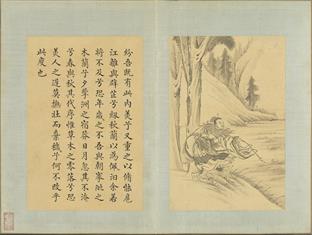 紛吾既有此內美兮又重之以脩能扈
江離與辟芷兮紉秋蘭以為佩汨余若
將不及兮恐年歲之不吾與朝搴阰之
木蘭兮夕攬洲之宿莽日月忽其不淹
兮春與秋其代序惟草木之零落兮恐
美人之遲莫撫壯而棄穢兮何不改乎
此度也